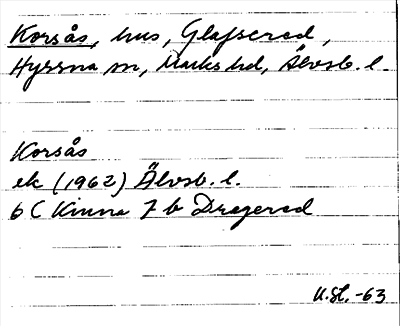 Korsås, hus, Glafserød,
Hyssna sn, Marks hd, Älvsb. l.
Korsås
ek (1962) Älvsb. l.
6 C Kinna 7 b Dragered
U.Sl. -63